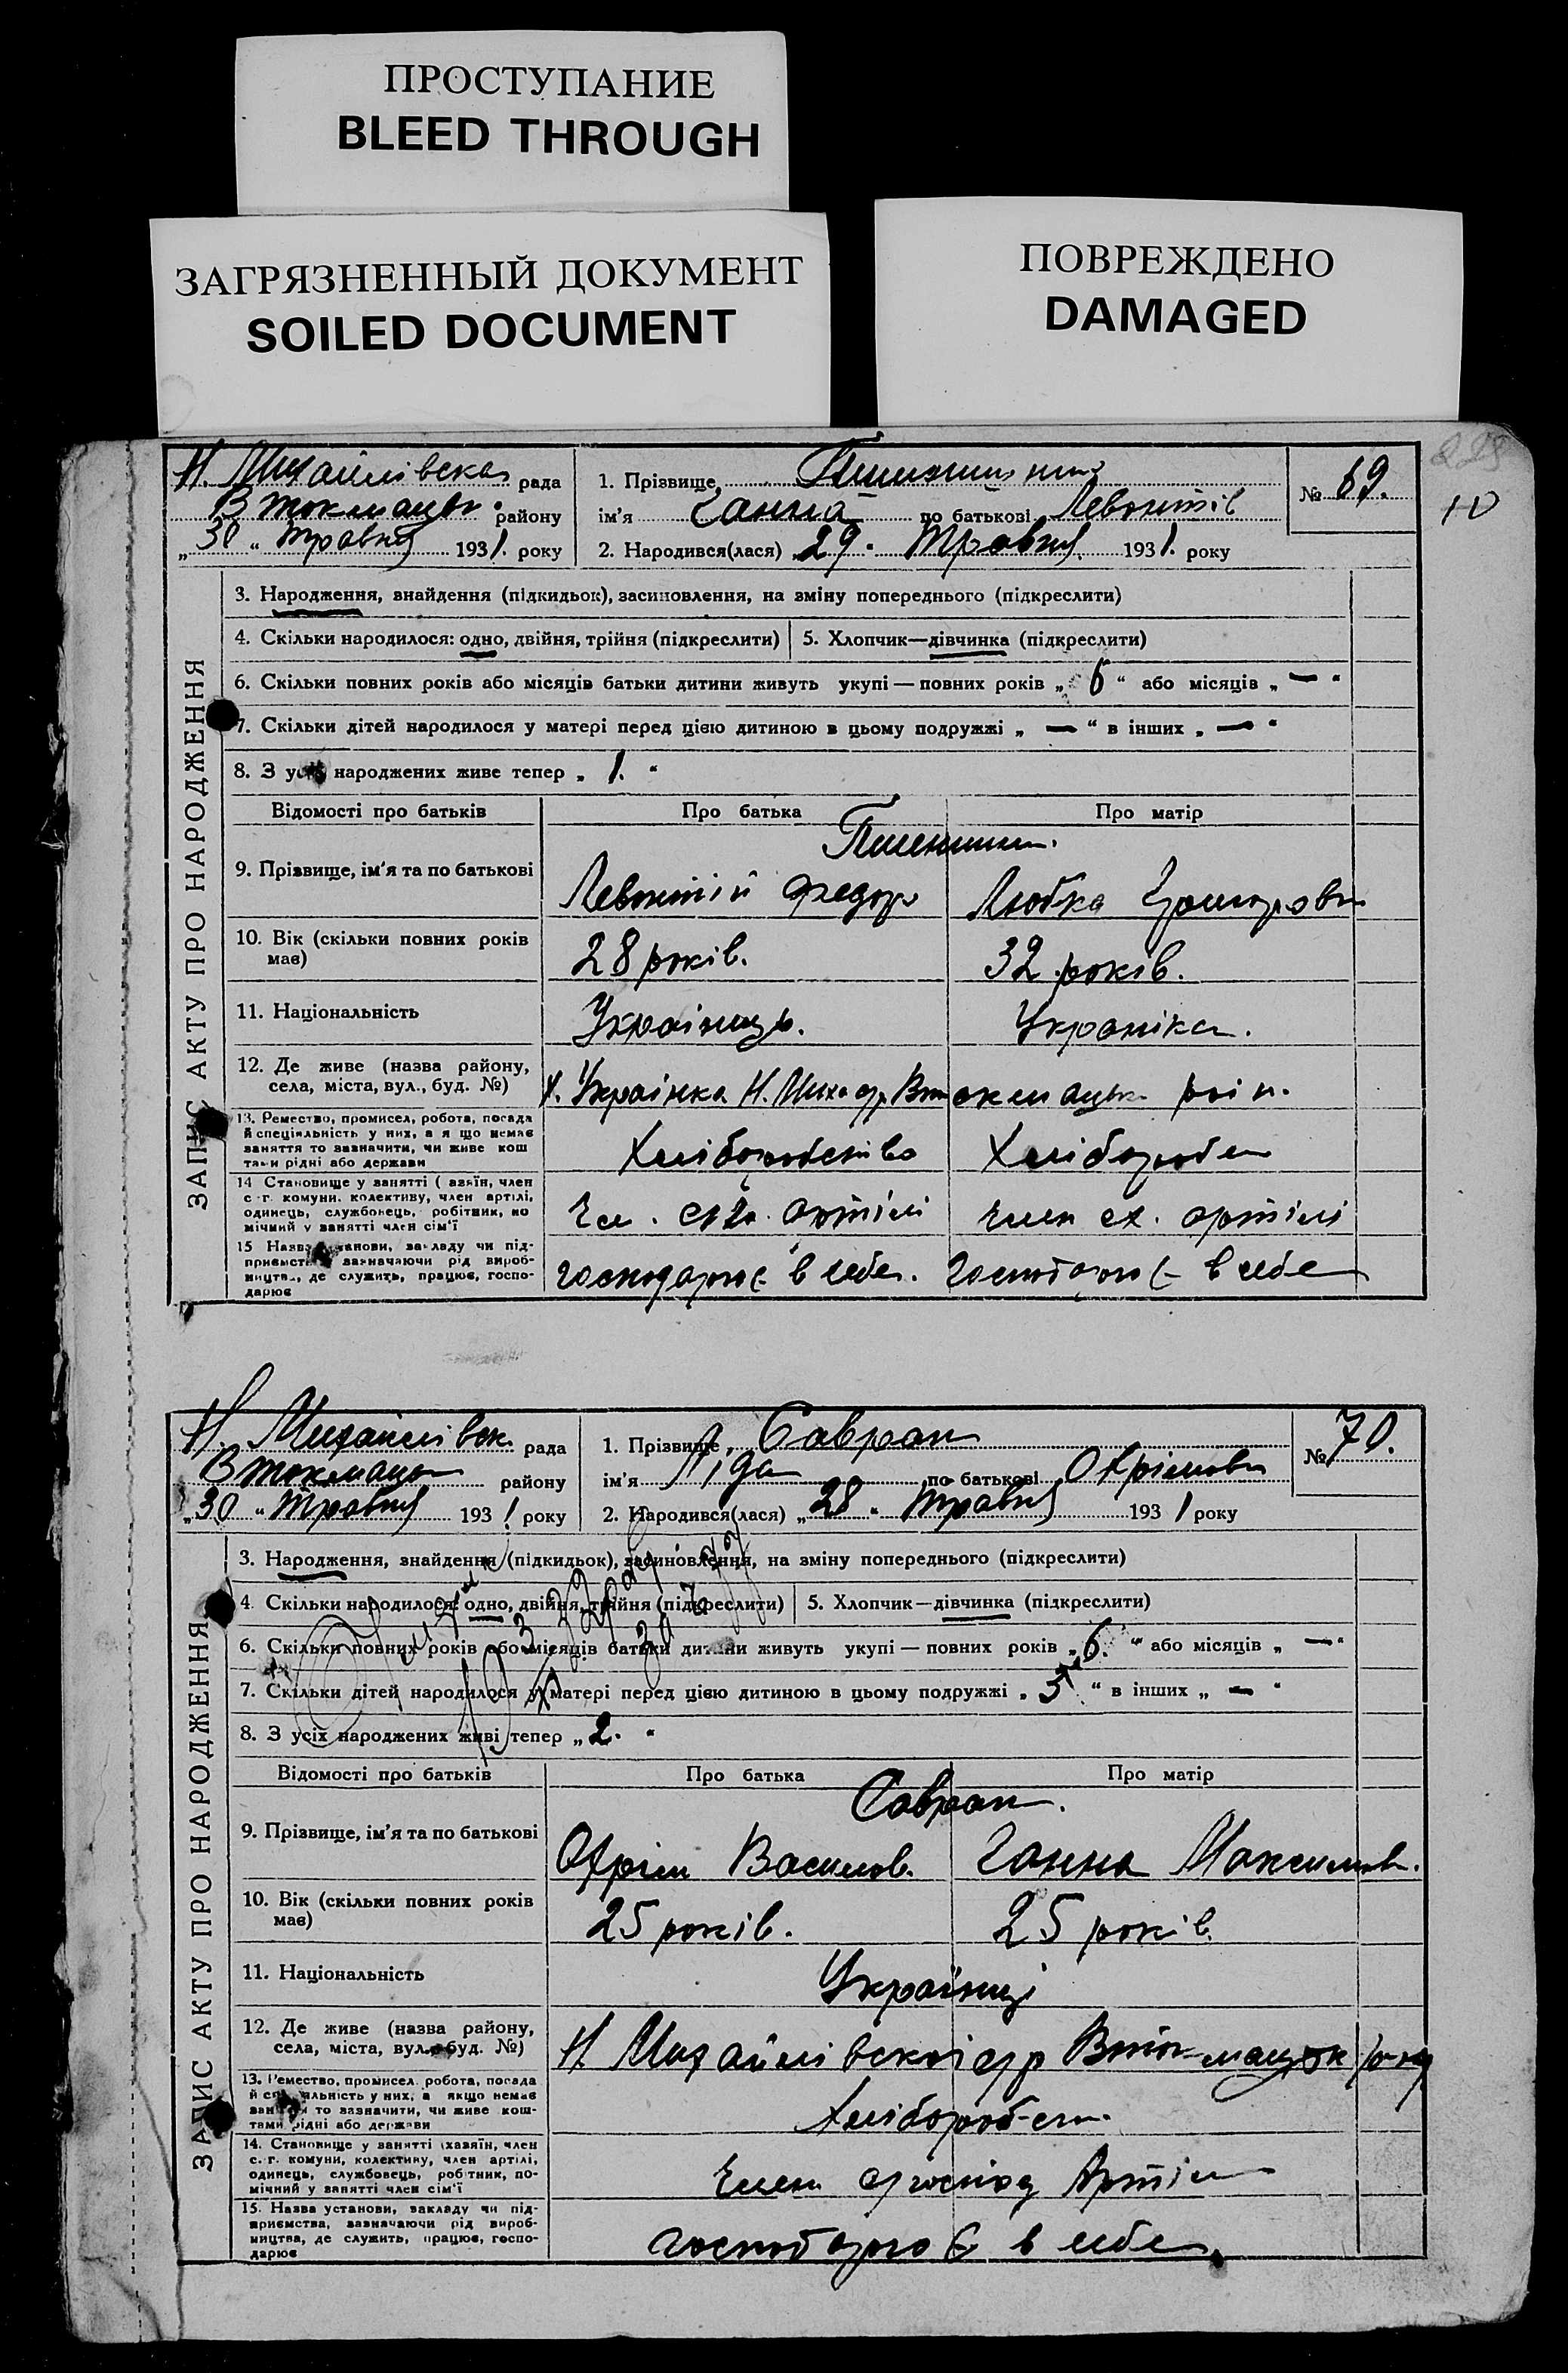 ПРОСТУПАНИЕ
BLEED THROUGH
ЗАГРЯЗНЕННЫЙ ДОКУМЕНТ
SOILED DOCUMENT
ПОВРЕЖДЕНО
DAMAGED
Н. Михайлівская рада
В токмацьк. району
„30“ травня 1931. року
1. Прізвище
ім'я Ганна по батькові Левонтів
2. Народився(лася) 29. травня 1931. року
№ 69.
10
ЗАПИС АКТУ ПРО НАРОДЖЕННЯ
3. Народження, знайдення (підкидьок), засиновлення, на зміну попереднього (підкреслити)
4. Скільки народилося: одно, двійня, трійня (підкреслити) 5. Хлопчик—дівчинка (підкреслити)
6. Скільки повних років або місяців батьки дитини живуть укупі — повних років „ 6 “ або місяців „ — “
7. Скільки дітей народилося у матері перед цією дитиною в цьому подружжі „ — “ в інших „ — “
8. З усіх народжених живе тепер „ 1. “
Відомості про батьків Про батька Про матір
9. Прізвище, ім'я та по батькові
Левонтій Федор Любка
10. Вік (скільки повних років має) 28 років. 32 років.
11. Національність Українець. Українка.
12. Де живе (назва району, села, міста, вул., буд. №) х. Українка Н. Миха ср. Втокмацьк. рай н.
13. Ремество, промисел, робота, посада й спеціяльність у них, а якщо немає заняття то зазначити, чи живе коштами рідні або держави
Хліборобство Хлібороб
14 Становище у занятті (хазяїн, член с.-г. комуни, колективу, член артілі, одинець, службовець, робітник, помічний у занятті член сім'ї
Чл. артілі член сг. артілі
15 Назва установи, закладу чи підприємства, зазначаючи рід виробництва, де служить, працює, господарює
господарює в себе. Господарює в себе
Н. Михайлівськ. рада
В токмацьк району
„30“ травня 1931 року
1. Прізвище Савран
ім'я Ліда по батькові Охрімовн
2. Народився(лася) „28“ травня 1931 року
№ 70.
ЗАПИС АКТУ ПРО НАРОДЖЕННЯ
3. Народження, знайдення (підкидьок), засиновлення, на зміну попереднього (підкреслити)
4. Скільки народилося: одно, двійня, трійня (підкреслити) 5. Хлопчик—дівчинка (підкреслити)
6. Скільки повних років або місяців батьки дитини живуть укупі — повних років „ 6. “ або місяців „ — “
7. Скільки дітей народилося у матері перед цією дитиною в цьому подружжі „ 3 “ в інших „ — “
8. З усіх народжених живі тепер „ 2. “
Відомості про батьків Про батька Про матір
9. Прізвище, ім'я та по батькові Савран.
Охрім Василов. Ганна Максимов.
10. Вік (скільки повних років має) 25 років. 25 років.
11. Національність Українці
12. Де живе (назва району, села, міста, вул., буд. №) Н. Михайлівської ср
13. Ремество, промисел, робота, посада й спеціяльність у них, а якщо немає заняття то зазначити, чи живе коштами рідні або держави
Хлібороб
14. Становище у занятті (хазяїн, член с.-г. комуни, колективу, член артілі, одинець, службовець, робітник, помічний у занятті член сім'ї
член Артіл
15. Назва установи, закладу чи підприємства, зазначаючи рід виробництва, де служить, працює, господарює
господарює в себе